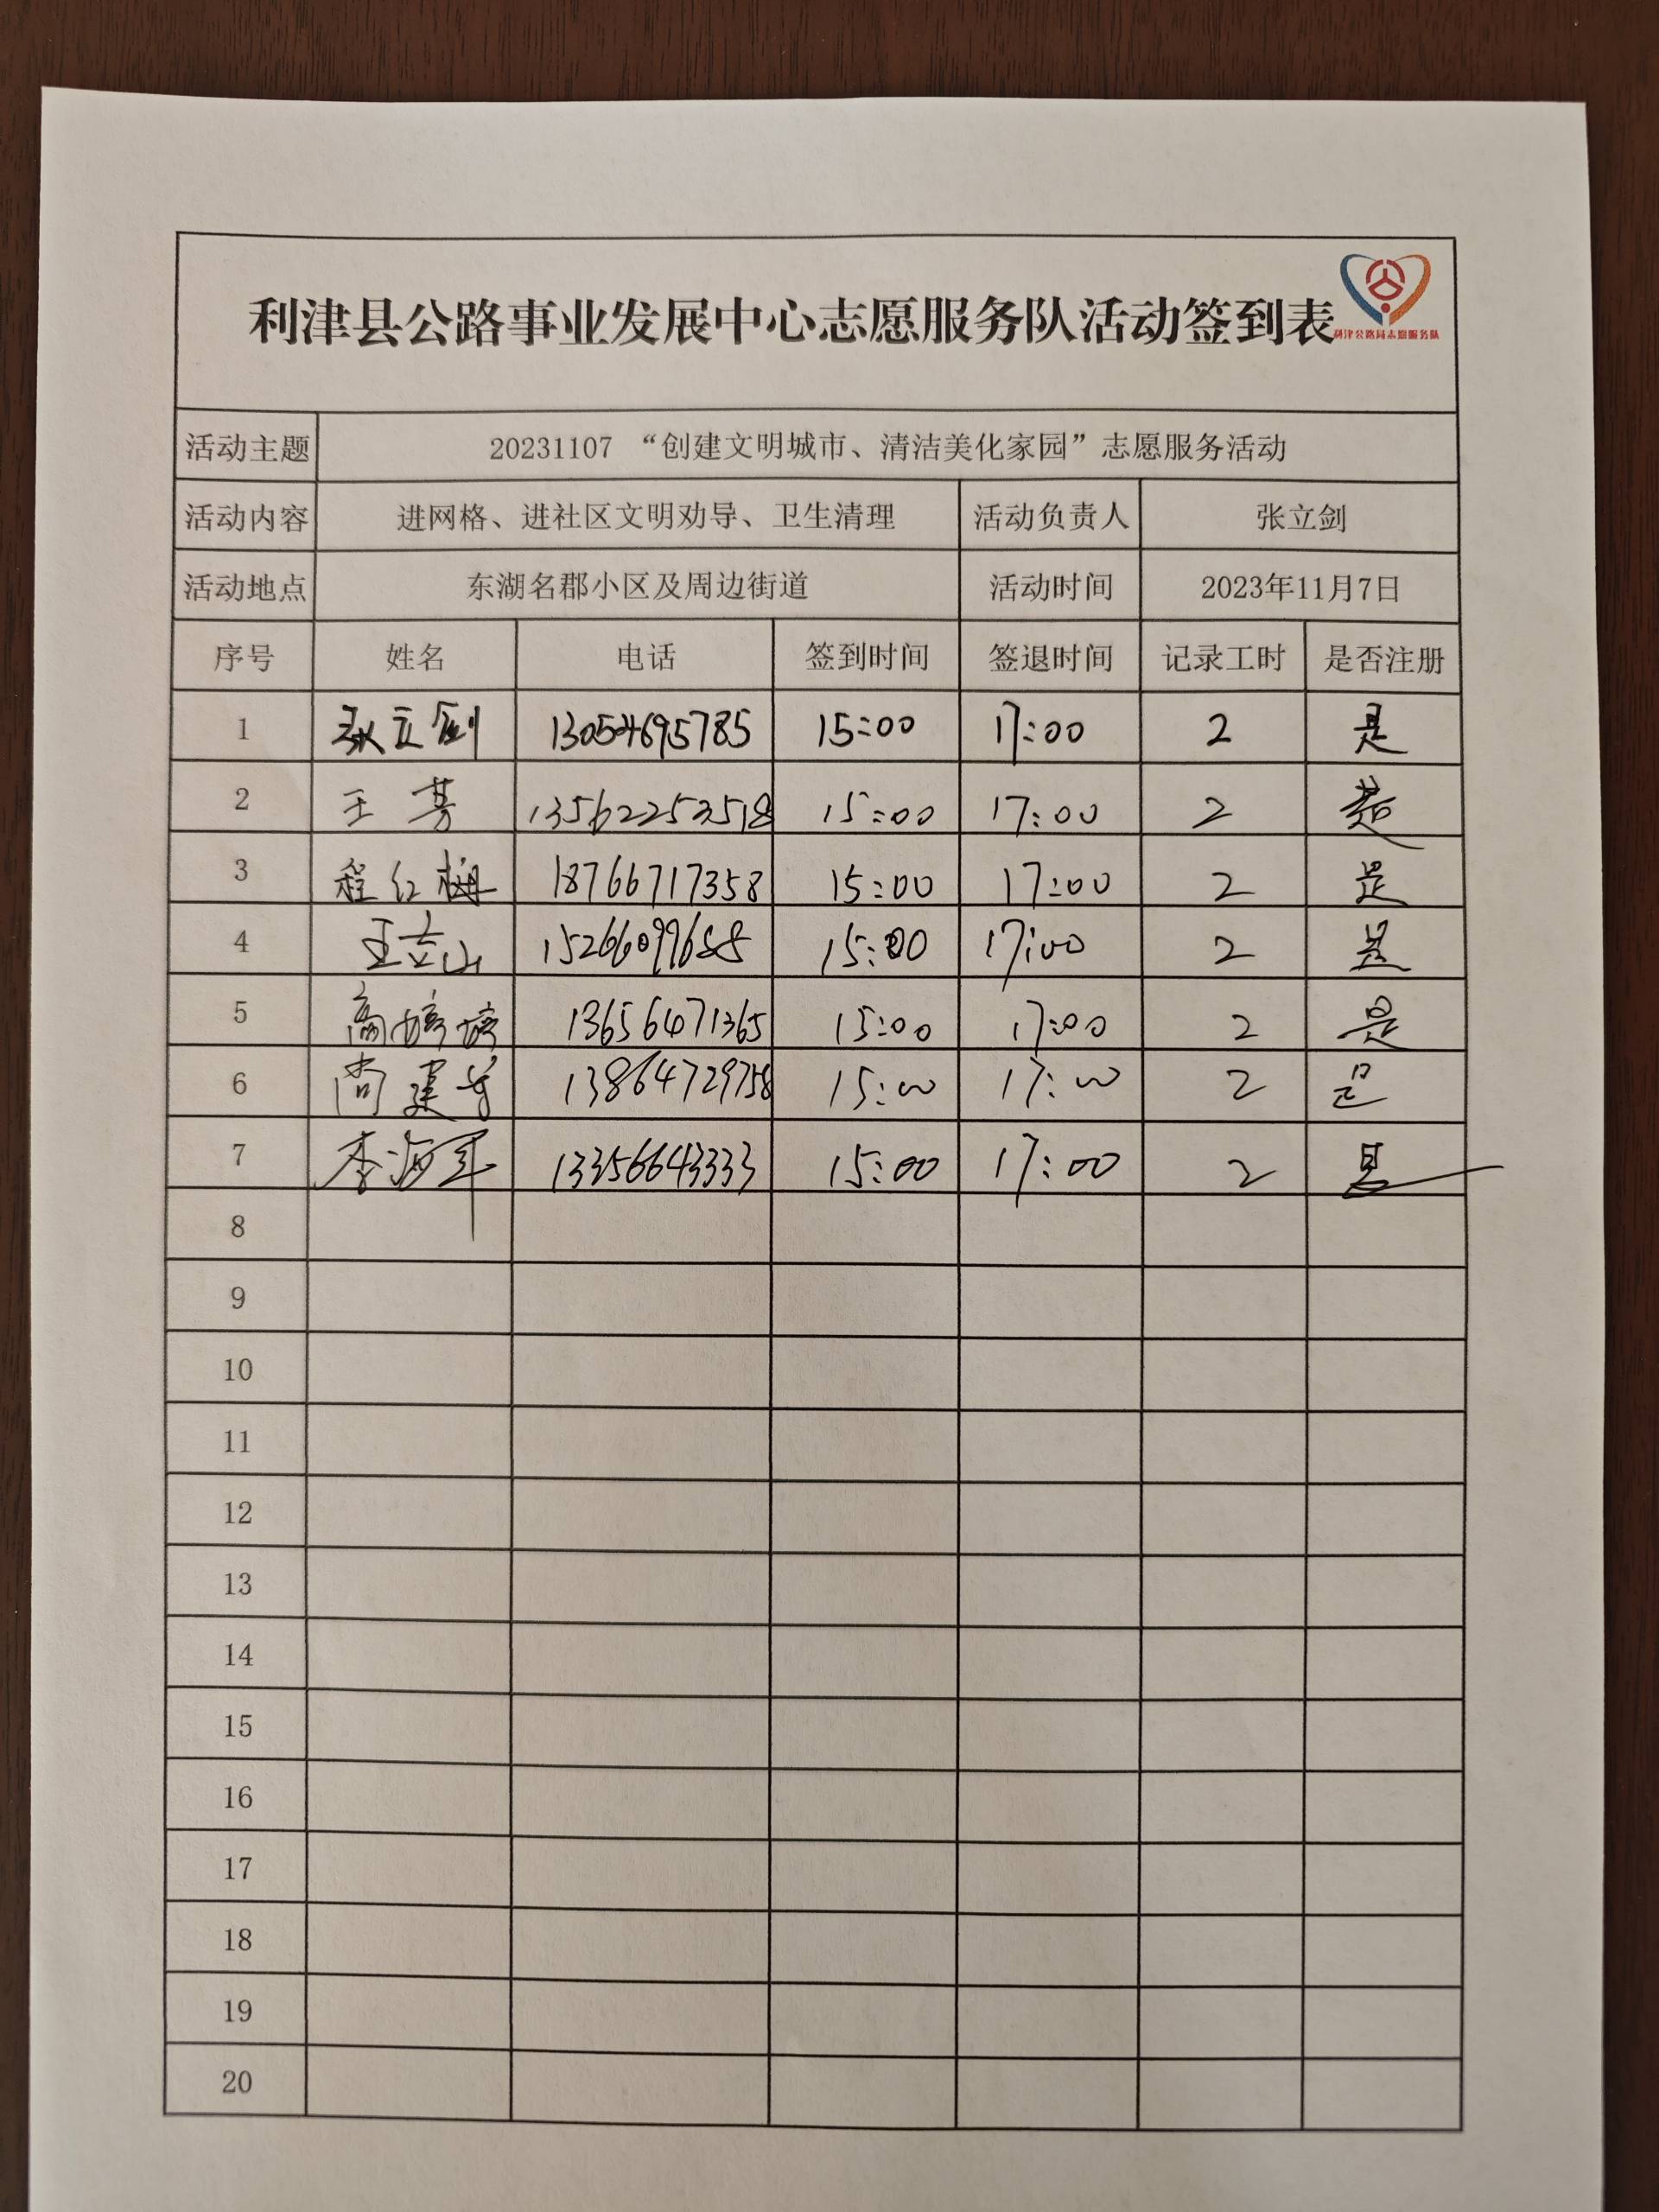 利津县公路事业发展中心志愿服务队活动签到表
利津公路局志愿服务队
活动主题 20231107 “创建文明城市、清洁美化家园”志愿服务活动
活动内容 进网格、进社区文明劝导、卫生清理 活动负责人 张立剑
活动地点 东湖名郡小区及周边街道 活动时间 2023年11月7日
序号 姓名 电话 签到时间 签退时间 记录工时 是否注册
1 张立剑 13054695785 15:00 17:00 2 是
2 王芳 13562253518 15:00 17:00 2 是
3 程红梅 18766717358 15:00 17:00 2 是
4 王立山 15266099688 15:00 17:00 2 是
5 高婷婷 13656471365 15:00 17:00 2 是
6 尚建 13864729758 15:00 17:00 2 是
7 李海军 13356643333 15:00 17:00 2 是
8
9
10
11
12
13
14
15
16
17
18
19
20